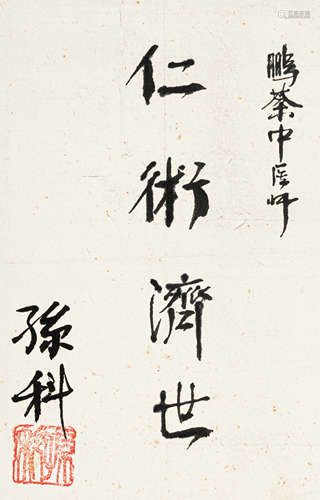 鹏蓁中医师
仁術濟世
孫科